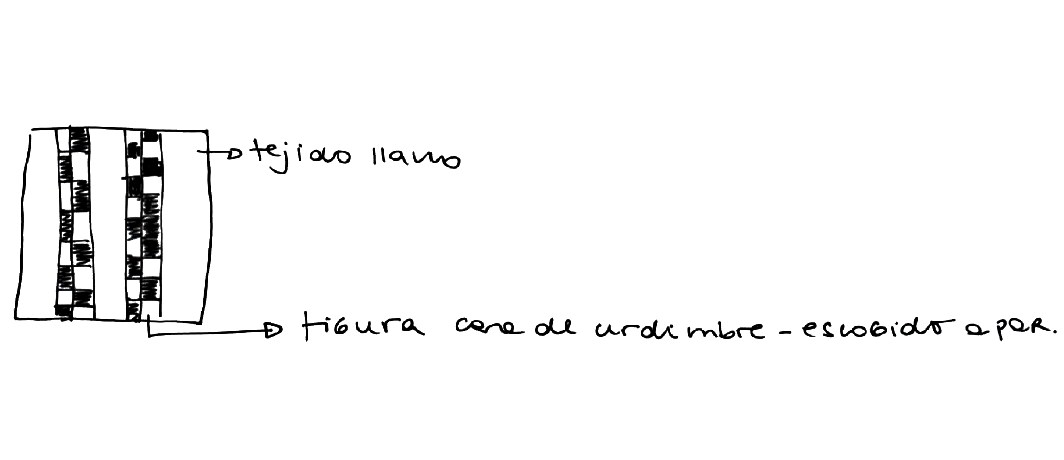 tejido llano
figura cara de urdimbre - escogido a par.